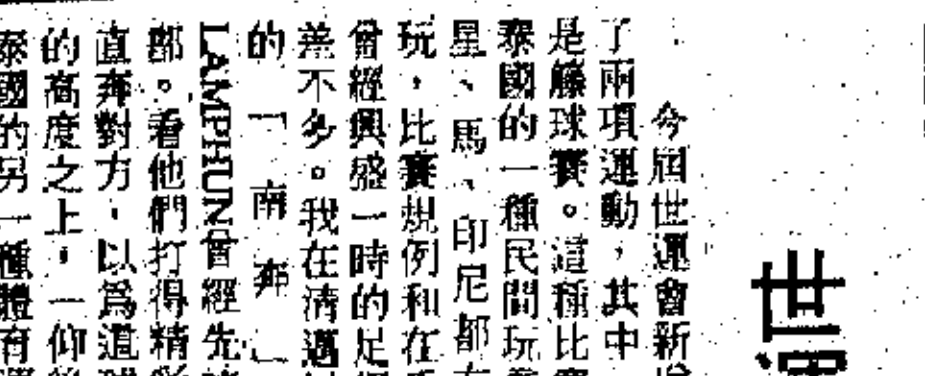 世運
今屆世運會新增
了兩項運動，其中
是籐球賽。這種比賽
泰國的一種民間玩意
星、馬、印尼都有
玩，比賽規例和在
曾經興盛一時的足
差不多。我在清邁
的「南奔」
LAMPHUN曾經先
部。看他們打得精彩
直奔對方，以為這球
的高度之上，一仰
泰國的另一種體育運